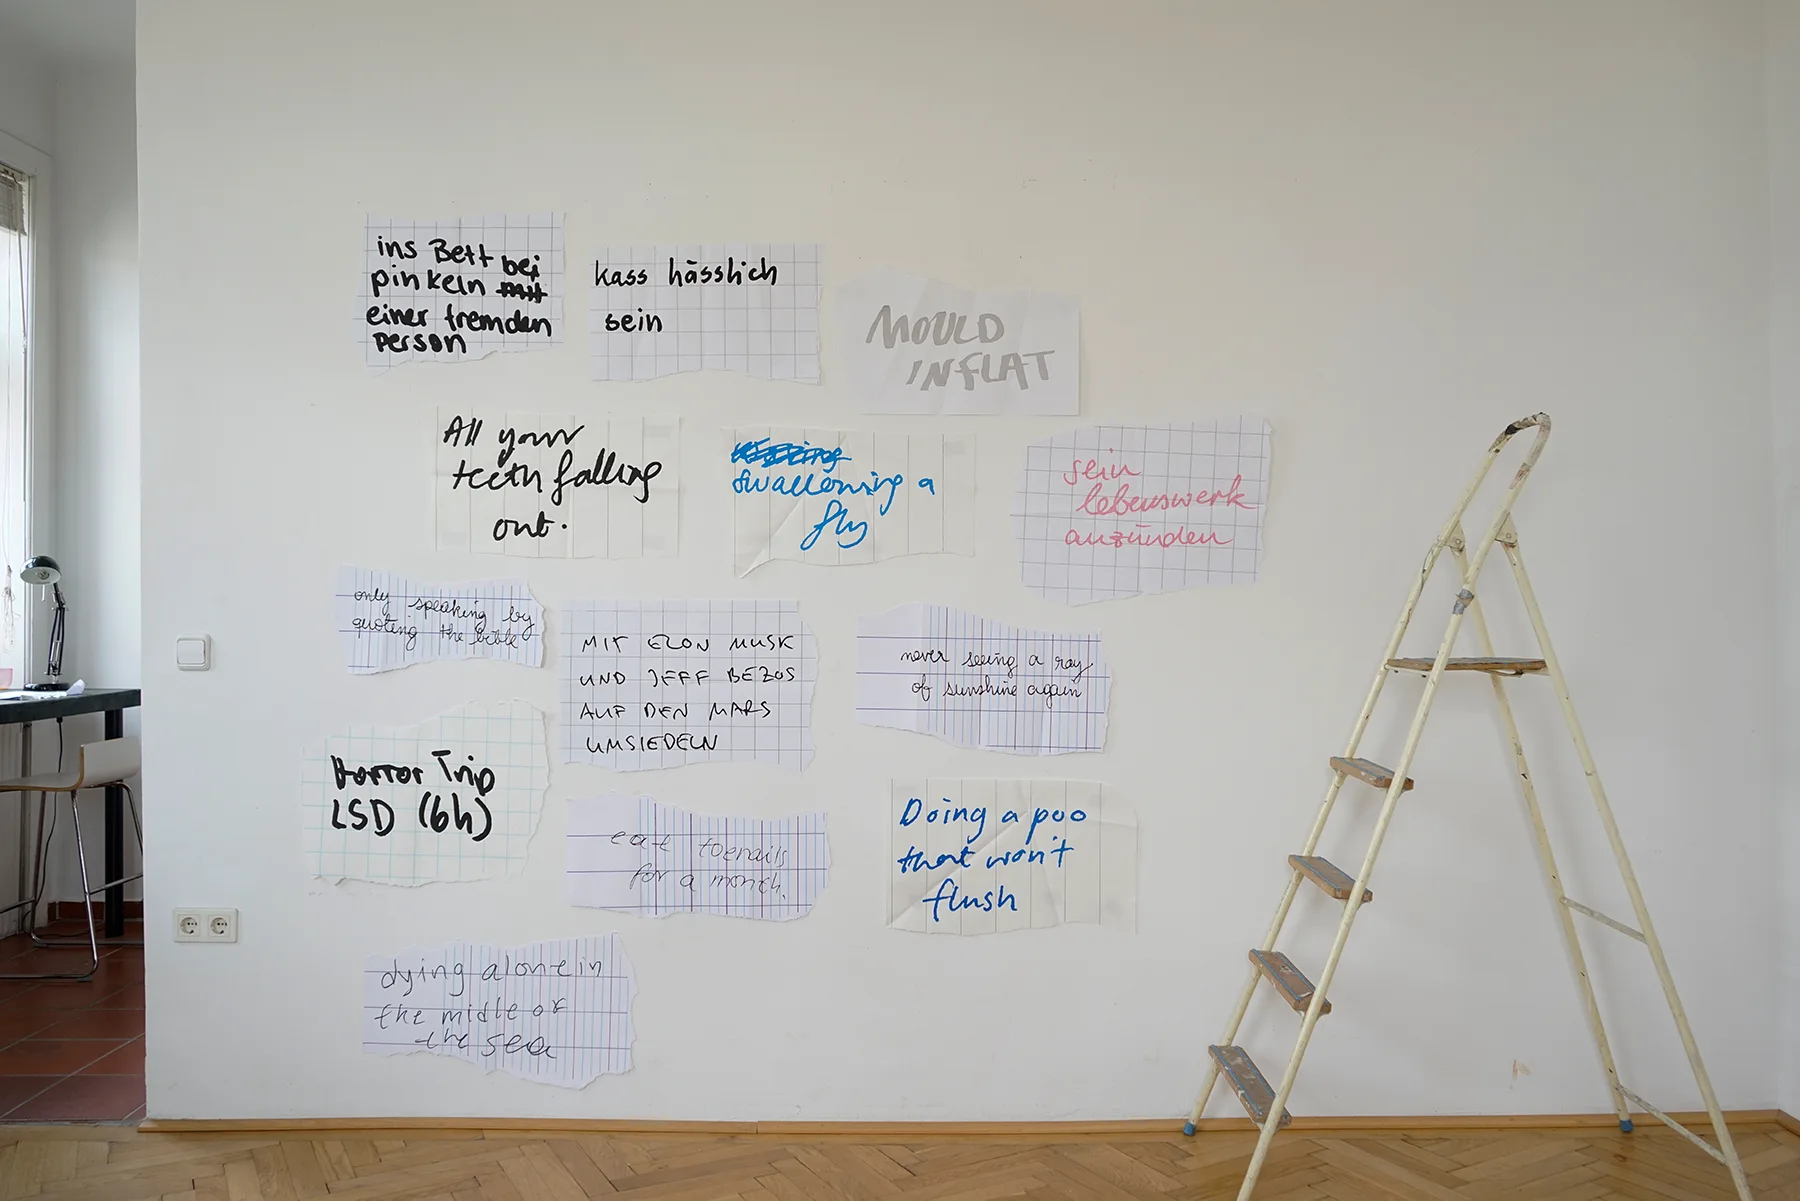 ins Bett bei
pinkeln mit
einer fremden
person
kass hässlich
sein
MOULD
INFLAT
All your
teeth falling
out.
swallowing a
fly
sein
lebenswerk
anzünden
only speaking by
quoting the bible
MIT ELON MUSK
UND JEFF BEZOS
AUF DEN MARS
UMSIEDELN
never seeing a ray
of sunshine again
Horror Trip
LSD (6h)
eat toenails
for a month.
Doing a poo
that won't
flush
dying alone in
the midle of
the sea